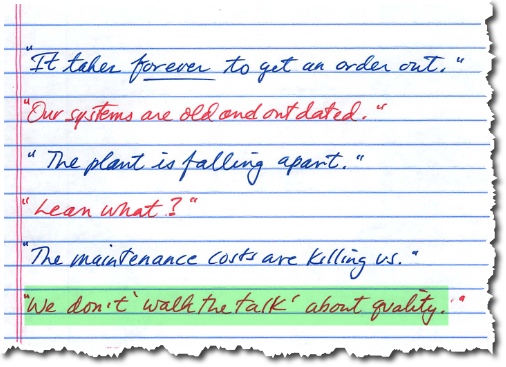 "It takes forever to get an order out."
"Our systems are old and outdated."
"The plant is falling apart."
"Lean what?"
"The maintenance costs are killing us."
"We don't 'walk the talk' about quality."